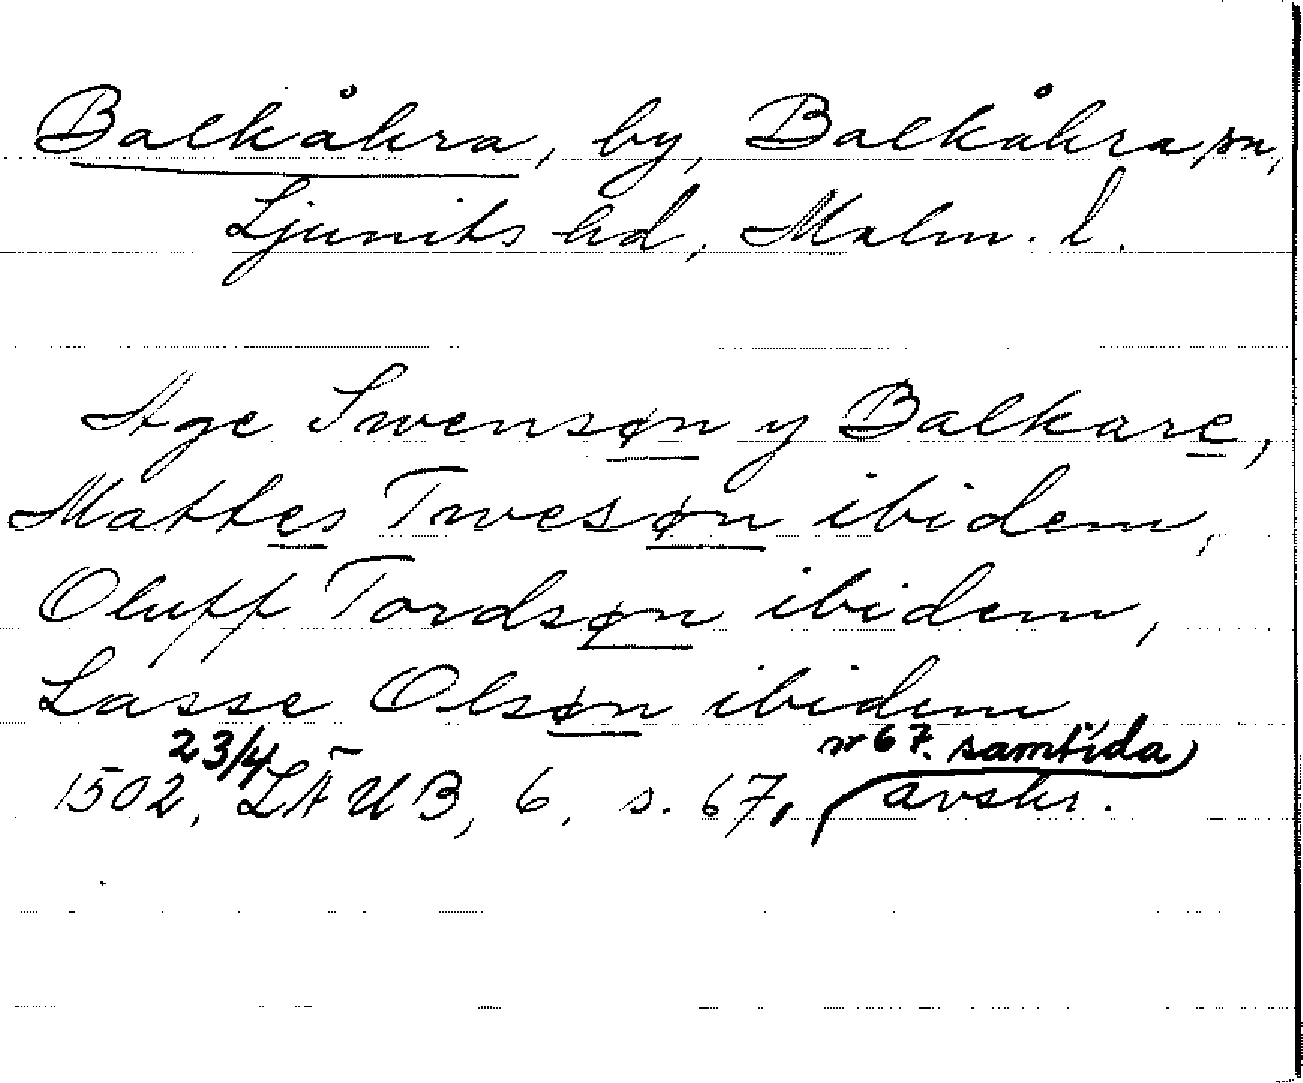 Balkåkra, by, Balkåkra sn,
Ljunits hd, Malm. l.
Age Swensøn y Balkare,
Mattes Twesøn ibidem,
Oluff Tordsøn ibidem,
Lasse Olsøn ibidem
1502 23/4, LÄUB, 6, s. 67, nr 67. samtida
avskr.